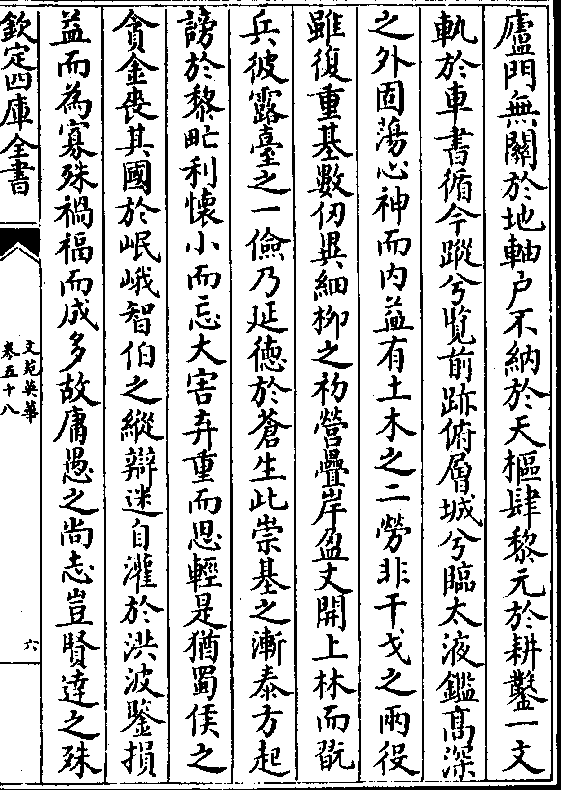 廬門無關於地軸户不納於天樞肆黎元於耕鑿一文
軌於車書循今蹤兮覧前跡俯層城兮臨太液鑑髙深
之外固蕩心神而内益有土木之二勞非干戈之兩役
雖復重基數仞異細栁之初營疊岸盈丈開上林而翫
兵彼露臺之一儉乃延德於蒼生此崇基之漸泰方起
謗於黎甿利懐小而忘大害弃重而思輕是猶蜀侯之
貪金喪其國於岷峨智伯之縱辯迷自灌於洪波鑒損
益而為寡殊禍福而成多故庸愚之尚志豈賢達之殊
欽定四庫全書
文苑英華
卷五十八
六